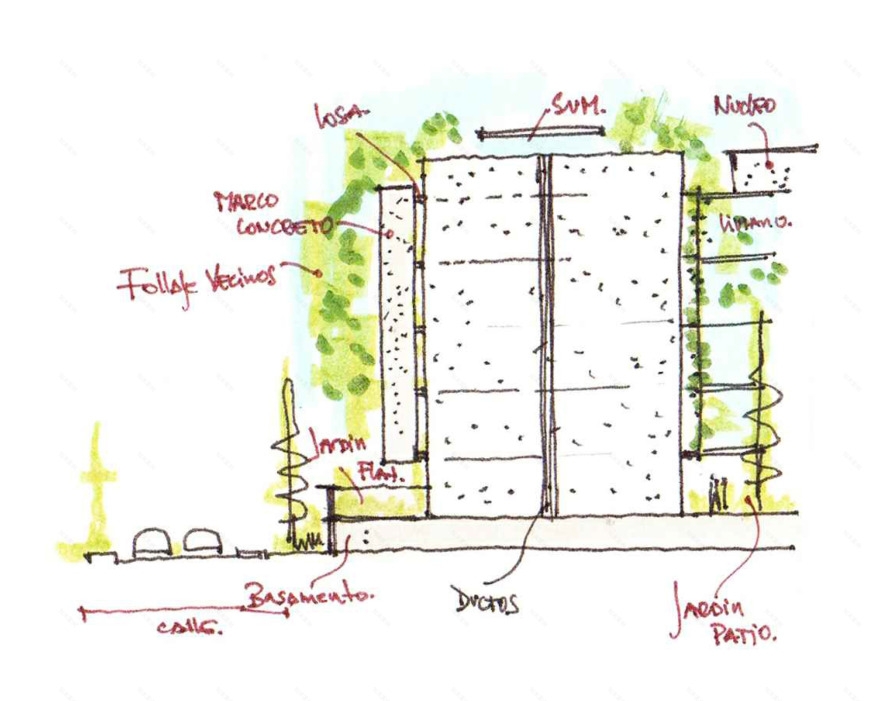 LOSA.
SUM.
NUCLEO
MARCO
CONCRETO
LIVIANO.
FOLLAJE VECINOS
JARDIN
FLAT.
BASAMENTO.
DUCTOS
JARDIN
PATIO.
CALLE.